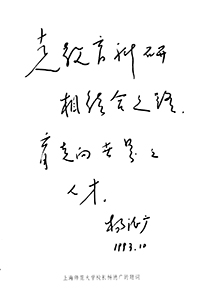 走教育科研
相结合之路.
育走向世界之
人才.
杨德广
1993.10
上海师范大学校长杨德广的题词